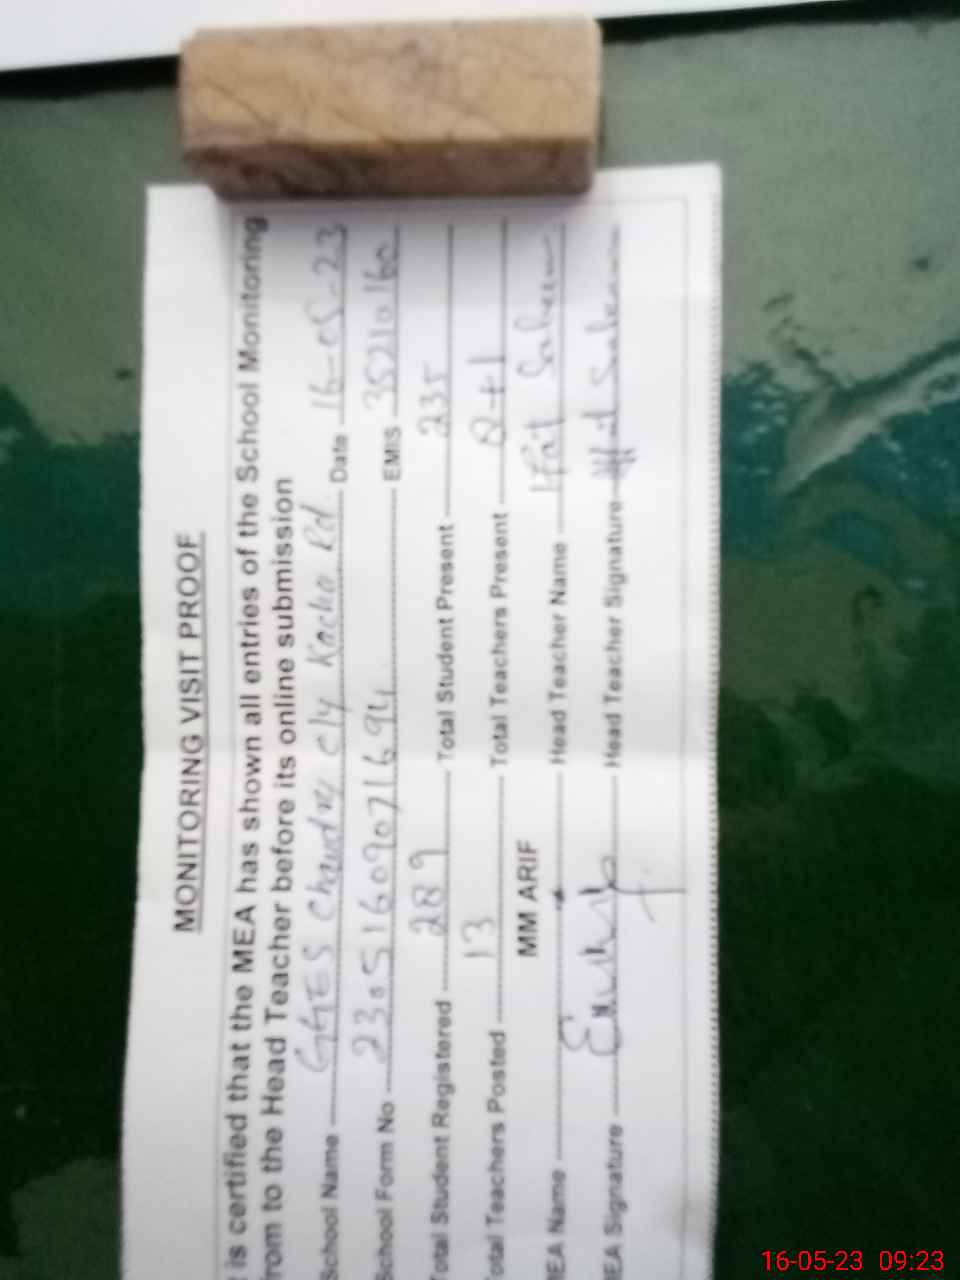 MONITORING VISIT PROOF
is certified that the MEA has shown all entries of the School Monitoring
from to the Head Teacher before its online submission
School Name GGES Chaudry Cly Kacha Rd Date 16-05-23
School Form No 23051609071694 EMIS 35210160
Total Student Registered 289 Total Student Present 235
Total Teachers Posted 13 Total Teachers Present
MEA Name MM ARIF Head Teacher Name Ifat Saleem
MEA Signature Head Teacher Signature
16-05-23 09:23